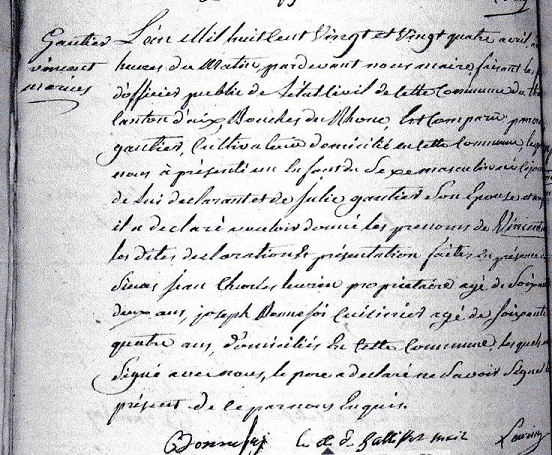 Gautier
vincent
marius
L'an Mil huit Cent Vingt et Vingt quatre avril, a
heures du Matin pardevant nous maire, faisant les
d'officier public de l'état Civil de Cette Commune du
Canton d'aix, Bouches du Rhone, Est Comparu
gautier, Cultivateur domicilié en Cette Commune
nous a présenté un Enfant du Sexe masculin né
de Lui déclarant et de Julie gautier Son Epouse
il a déclaré vouloir donné les prenoms de Vincent
les dites déclaration & présentation faites En présence
Sieurs Jean Charles propriétaire agé de Soixante
deux ans, joseph Bonnefoi Cuisinier agé de Soixante
quatre ans, domiciliés En Cette Commune, les quels
Signé avec nous, le pere a déclaré ne Savoir Signé
présent de ce par nous Enquis.
Bonnefoi le de Galliffet maire